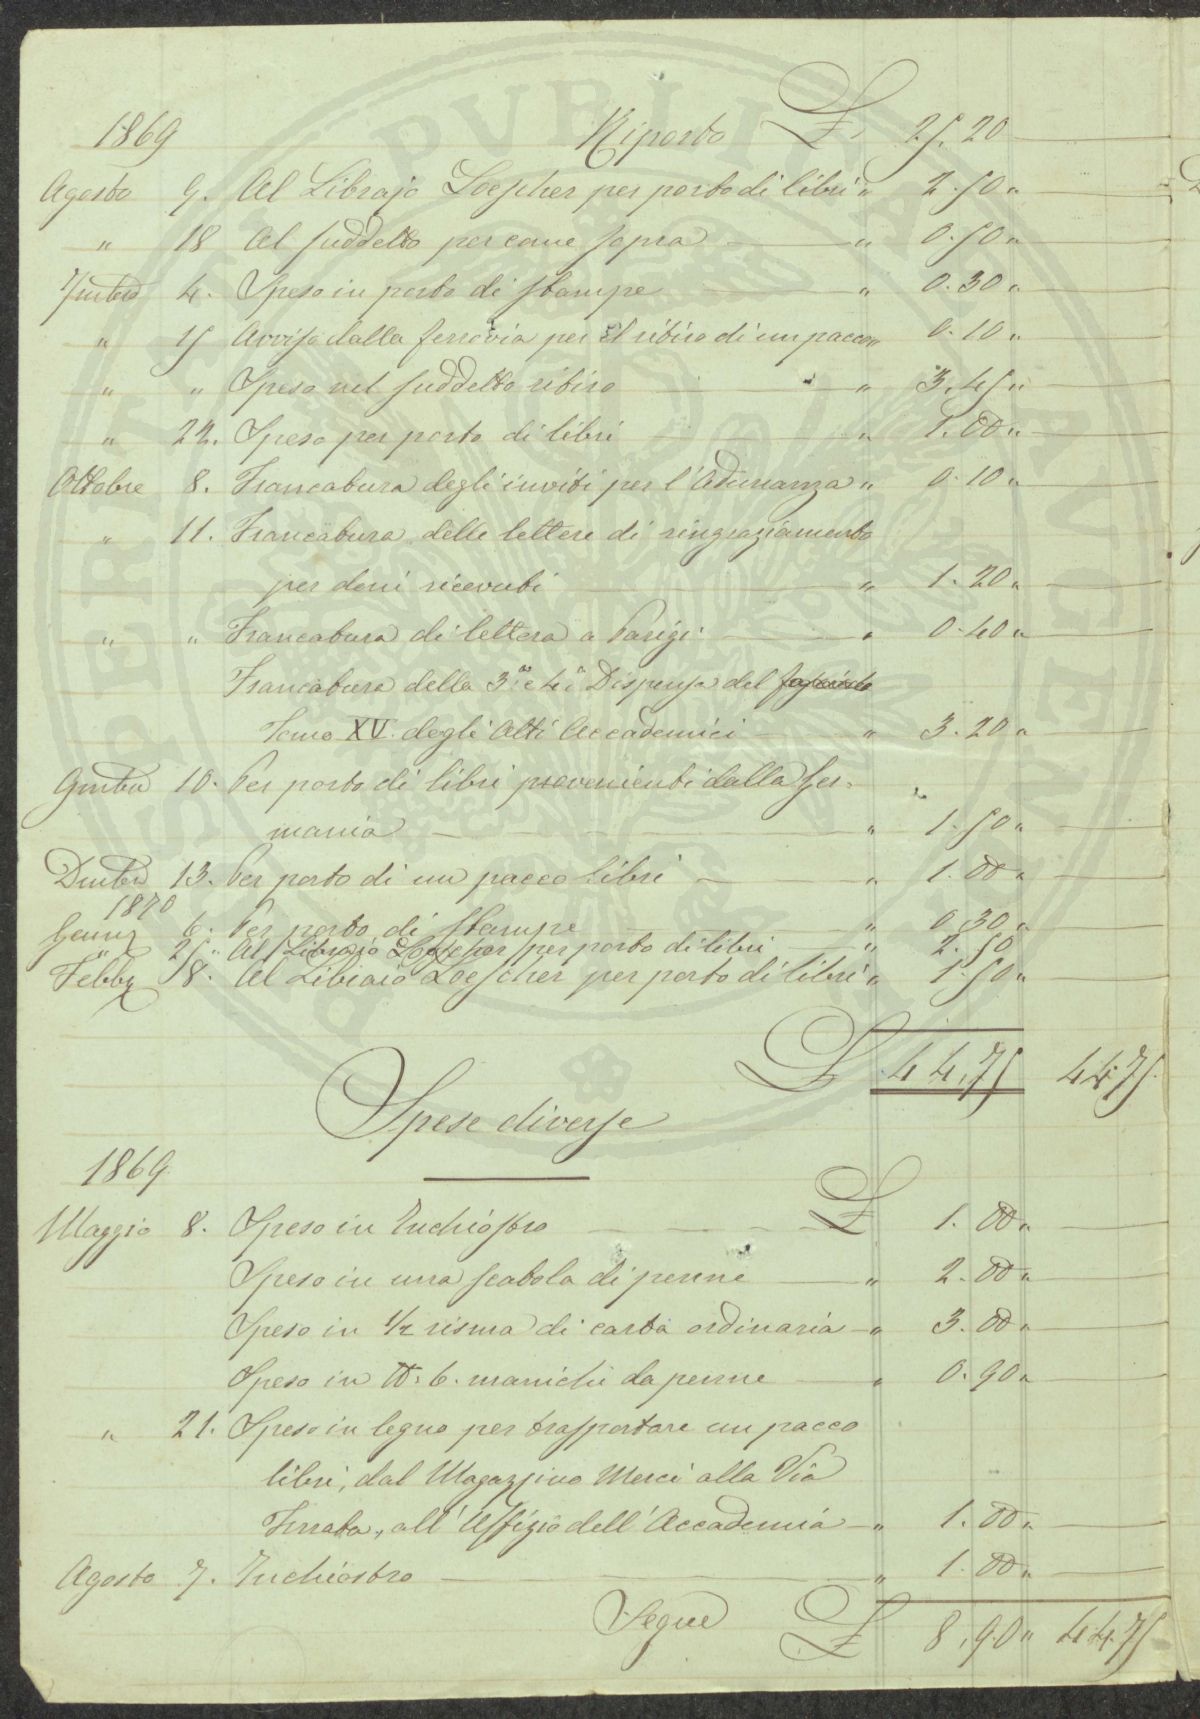 1869 Riporto £ 25. 20
Agosto 9. Al Librajo Loescher per porto di libri " 2. 50 "
" 18 Al suddetto per come sopra " 0. 50 "
7mbre 4. Speso in porto di stampe " 0. 30 "
" 15 Avviso dalla ferrovia per il ritiro di un pacco " 0. 10 "
" " Speso nel suddetto ritiro " 3. 45 "
" 22. Speso per porto di libri " 1. 00 "
Ottobre 8. Francatura degli inviti per l'Adunanza " 0. 10 "
" 11. Francatura delle lettere di ringraziamento
per doni ricevuti " 1. 20 "
" " Francatura di lettera a Parigi " 0. 40 "
Francatura della 3.a e 4.a Dispensa del
Tomo XV. degli Atti Accademici " 3. 20 "
9mbre 10. Per porto di libri provenienti dalla Ger-
mania " 1. 50 "
Dmbre 13. Per porto di un pacco libri " 1. 00 "
1870
Genn. 6. Per porto di stampe " 0. 30 "
" 25 " Al Librajo Loescher per porto di libri " 2. 50
Febb. 18. Al Librajo Loescher per porto di libri " 1. 50 "
£ 44. 75 44. 75.
Spese diverse
1869.
Maggio 8. Speso in Inchiostro £ 1. 00 "
Speso in una scatola di penne " 2. 00 "
Speso in 1/2 risma di carta ordinaria " 3. 00 "
Speso in N. 6. manichi da penne " 0. 90 "
" 21. Speso in legno per trasportare un pacco
libri, dal Magazzino Merci alla Via
Ferrata, all'Uffizio dell'Accademia " 1. 00 "
Agosto 7. Inchiostro " 1. 00 "
Segue £ 8. 90 " 44. 75